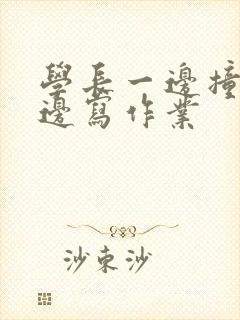 學長一邊撞
邊寫作業
沙束沙